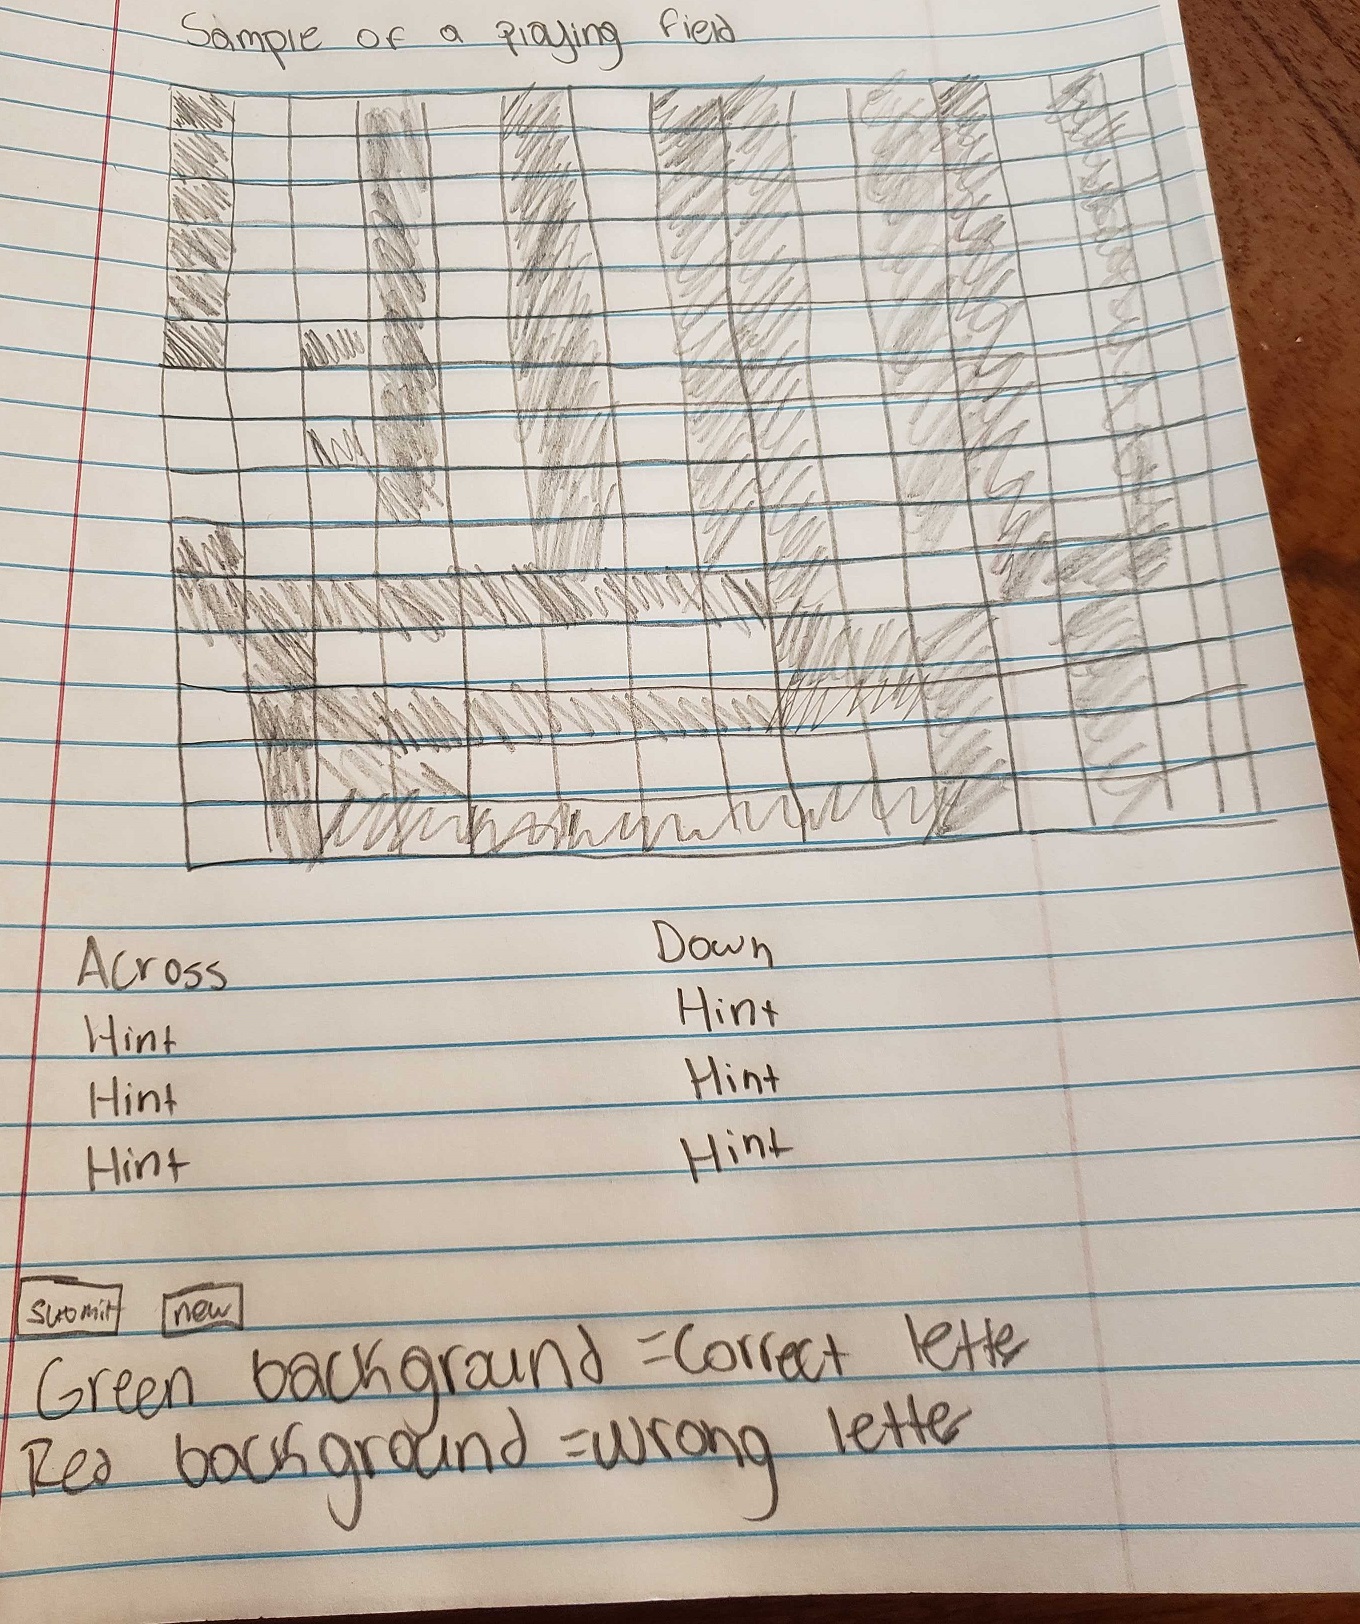 Sample of a playing field
Across Down
Hint Hint
Hint Hint
Hint Hint
submit new
Green background =Correct lette
Red background =wrong letter